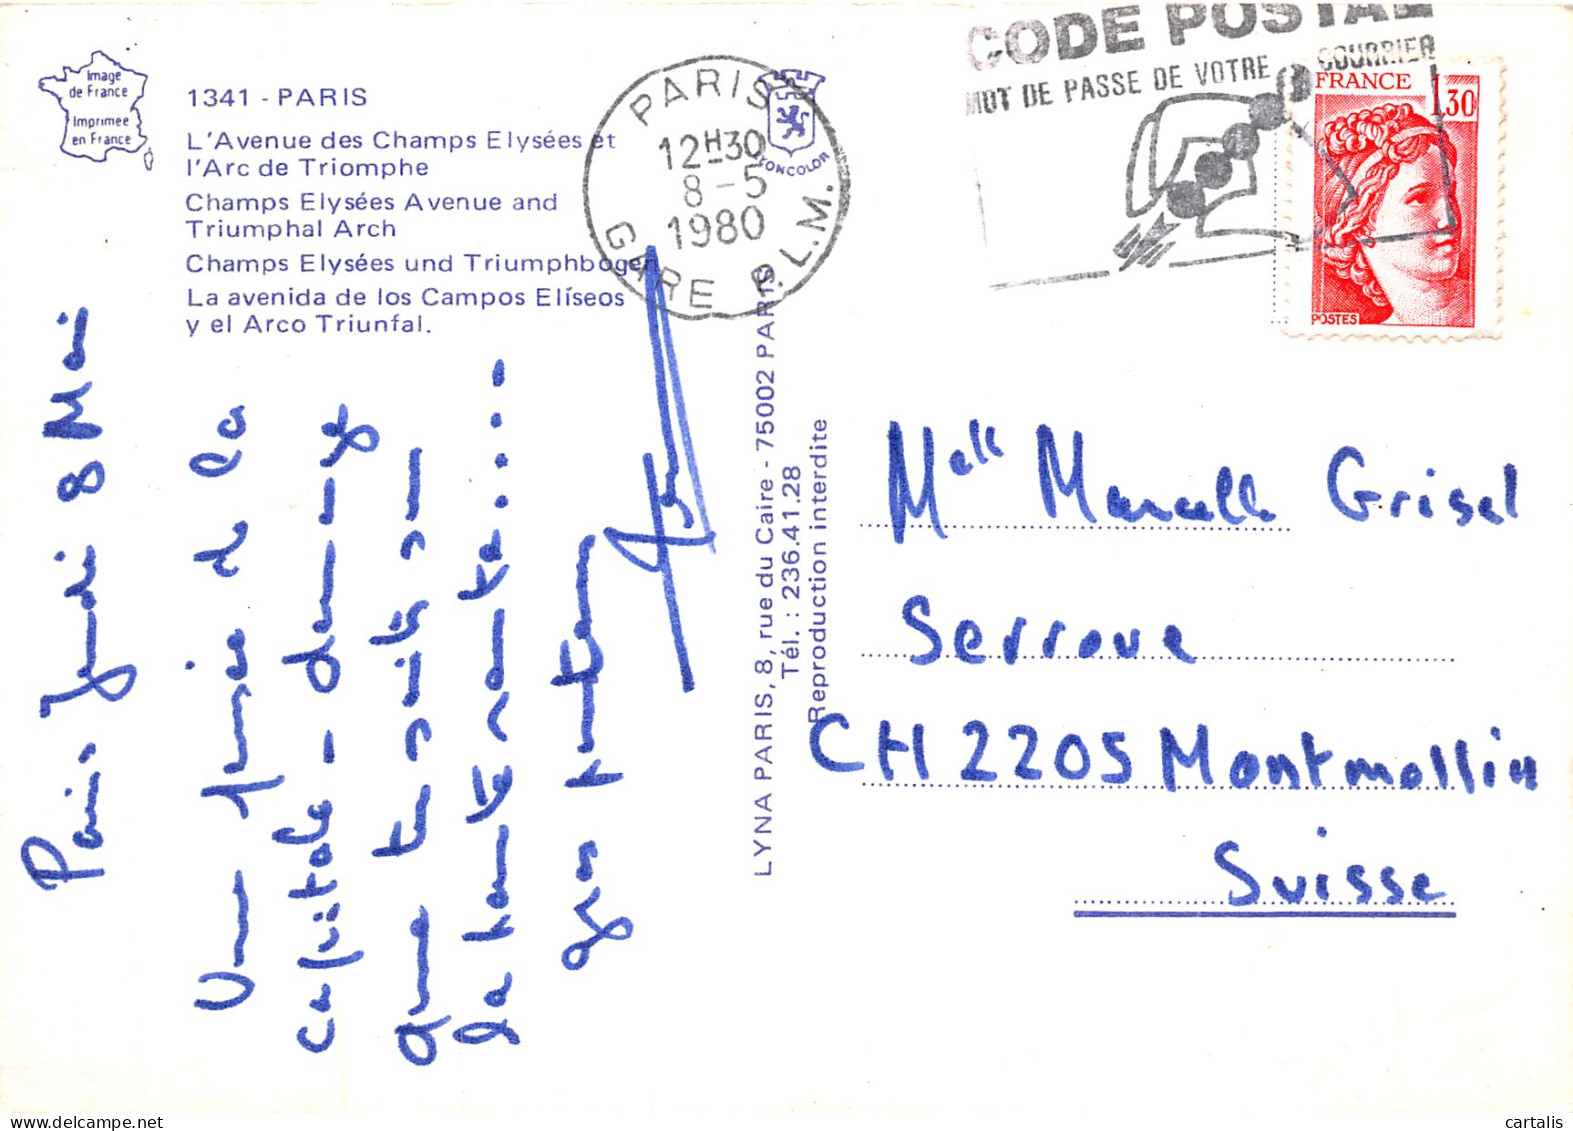 Image
de France
Imprimée
en France
1341 - PARIS
L'Avenue des Champs Elysées et
l'Arc de Triomphe
Champs Elysées Avenue and
Triumphal Arch
Champs Elysées und Triumphbogen
La avenida de los Campos Elíseos
y el Arco Triunfal.
PARIS
12H30
8-5
1980
GARE P.L.M.
YONCOLOR
CODE POSTAL
MOT DE PASSE DE VOTRE COURRIER
FRANCE
1,30
POSTES
Paris Jeudi 8 Mai
de la
capitale - dans
que
gros
LYNA PARIS, 8, rue du Caire - 75002 PARIS
Tél. : 236.41.28
Reproduction interdite
Melle Marcelle Grisel
Serroue
CH 2205 Montmollin
Suisse
cartalis